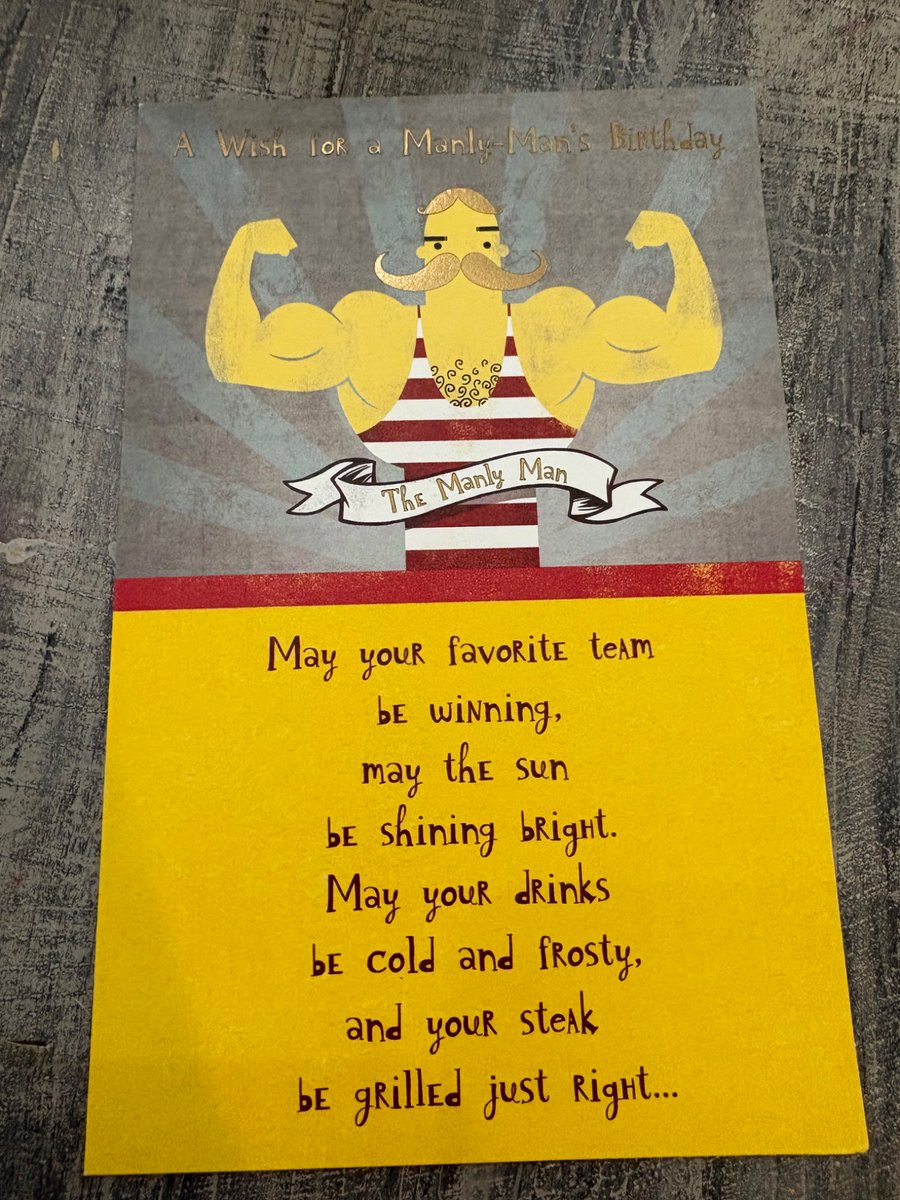 A Wish for a Manly-Man's Birthday
The Manly Man
May your favorite team
be winning,
may the sun
be shining bright.
May your drinks
be cold and frosty,
and your steak
be grilled just right...